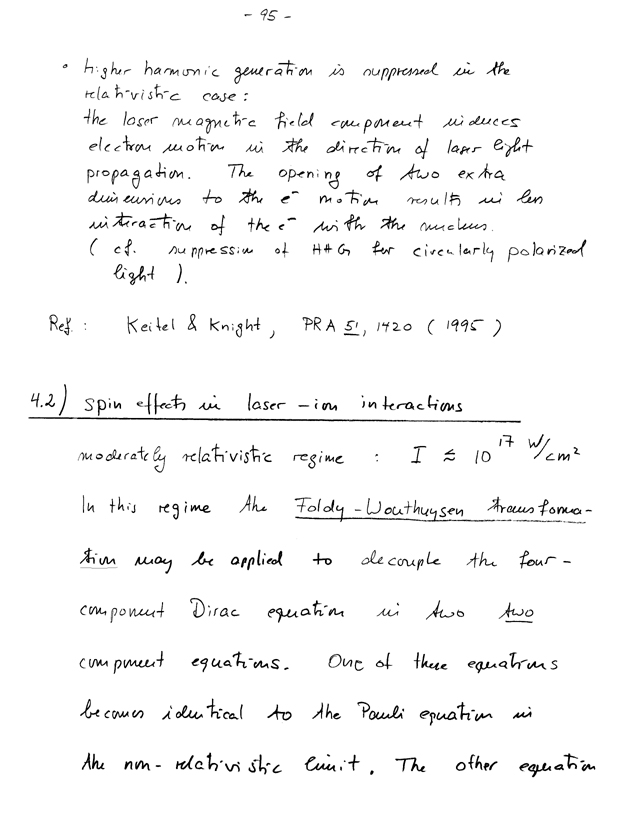 - 95 -
• higher harmonic generation is suppressed in the
relativistic case :
the laser magnetic field component induces
electron motion in the direction of laser light
propagation. The opening of two extra
dimensions to the e⁻ motion results in less
interaction of the e⁻ with the nucleus.
( cf. suppression of HHG for circularly polarized
light ).
Ref. : Keitel & Knight, PRA 51, 1420 ( 1995 )
4.2) Spin effects in laser - ion interactions
moderately relativistic regime : I ≲ 10¹⁷ W/cm²
In this regime the Foldy - Wouthuysen transforma-
tion may be applied to decouple the four -
component Dirac equation in two two
component equations. One of these equations
becomes identical to the Pauli equation in
the non - relativistic limit. The other equation